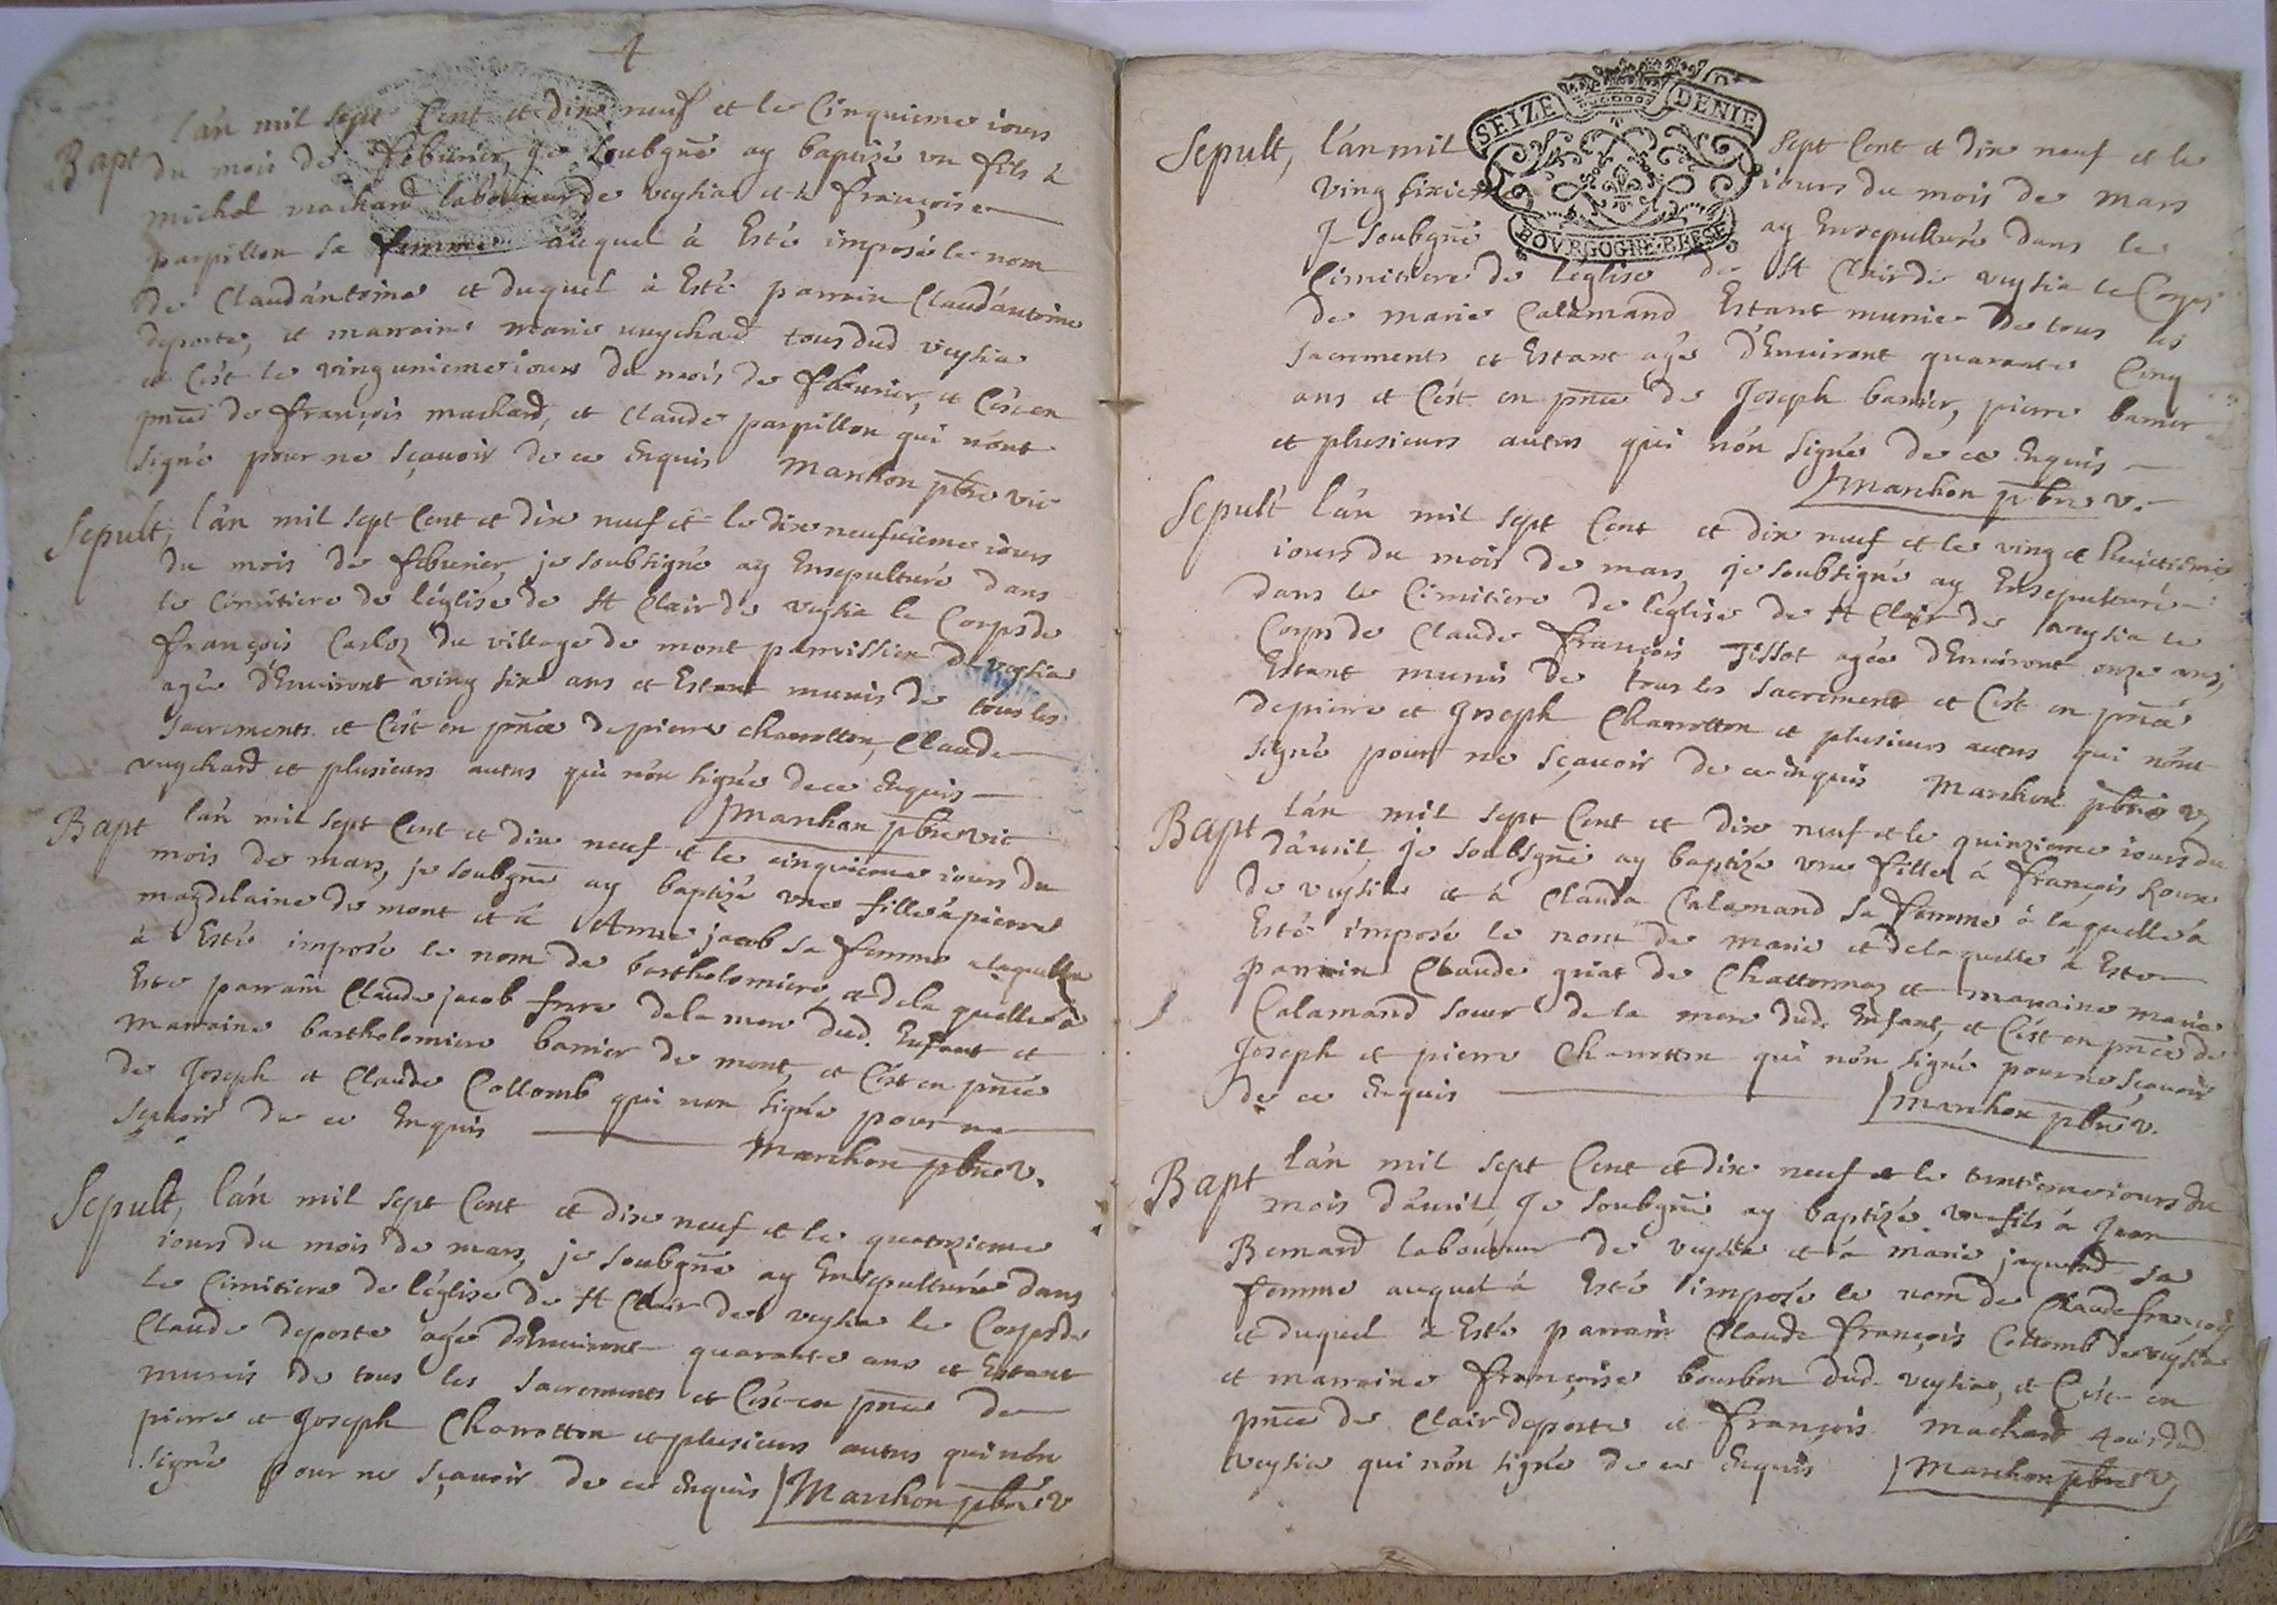 Bapt l'an mil sept Cent et dix neuf et le Cinquieme iours
du mois de feburier, je soubgne ay baptizé un fils à
michel machard laboureur de veysia et à françoise
parpillon sa femme auquel à Esté imposé le nom
de Claud'antoine et duquel à Esté parrain Claud'antoine
deporte, et marraine marie vuychard tous dud veysia
et C'est le ving unieme iours du mois de feburier, et C'est en
pnce de françois machard, et Claude parpillon qui n'ont
signé pour ne sçavoir de ce Enquis Marchon pbre vic
Sepult, l'an mil sept Cent et dix neuf et le dix neufuieme iours
du mois de feburier, je soubsigné ay Ensepulturé dans
le Cimitiere de l'église de St Clair de veysia le Corps de
françois Carloz du village de mont parroissien de veysia
agée d'Environt ving six ans et Estant munis de tous les
sacrements et C'est en pnce de pierre charrotton, Claude
vuychard et plusieurs autres qui n'on signée de ce Enquis
Marchon pbre vic
Bapt l'an mil sept Cent et dix neuf et le cinquieme iours du
mois de mars, je soubgne ay baptizé une fille à pierre
magdelaine de mont et à Anne jacob sa femme a laquelle
à Esté imposé le nom de bartholomiere, et de la quelle à
Este parrain Claude jacob frere de la mere dud. Enfant et
marraine bartholomiere banier de mont, et C'est en pnce
de Joseph et Claude Collomb qui non signé pour ne
sçavoir de ce Enquis Marchon pbre v.
Sepult, l'an mil sept Cent et dix neuf et le quatorzieme
iours du mois de mars, je soubgne ay Ensepulturée dans
le Cimitiere de l'église de St Clair de veysia le Corps de
Claude deporte agée d'Environt quarante ans et Estant
munis de tous les sacrements et C'est en pnce de
pierre et Joseph Charrotton et plusieurs autres qui n'on
signé pour ne sçavoir de ce Enquis Marchon pbre v
SEIZE DENIE
BOVRGOGNE BRESSE
Sepult, l'an mil sept Cent et dix neuf et le
ving sixie iours du mois de mars
Je soubgne ay Ensepulturé dans le
Cimitiere de l'église de St Clair de veysia le Corps
de marie Calamand Estant munie de tous les
sacrements et Estant agée d'Environt quarante Cinq
ans et C'est en pnce de Joseph banier, pierre banier
et plusieurs autres qui n'on signé de ce Enquis
Marchon pbre v.
Sepult l'an mil sept Cent et dix neuf et le ving et huictieme
iours du mois de mars, je soubsigné ay Ensepulturé
dans le Cimitiere de l'église de St Clair de veysia le
Corps de Claude françois Tissot agée d'Environt onze ans,
Estant munis de tous les sacrement et C'est en pnce
de pierre et Joseph Charrotton et plusieurs autres qui n'ont
signé pour ne sçavoir de ce Enquis Marchon pbre v
Bapt l'an mil sept Cent et dix neuf et le quinzieme iours du
d'auril, je soubsgne ay baptizé une fille à françois Roux
de veysia et à Clauda Calamand sa femme à laquelle à
Esté imposé le nom de marie et de laquelle à Este
parrain Claude guiat de Chattonnaz et marraine marie
Calamand sour de la mere dud. Enfant, et C'est en pnce de
Joseph et pierre Charrotton qui n'on signé pour ne sçavoir
de ce Enquis Marchon pbre v.
Bapt l'an mil sept Cent et dix neuf et le trentieme iours du
mois d'auril, Je soubgne ay baptizé un fils à Jean
Bernard laboureur de veysia et à marie jaquend sa
femme auquel à Esté imposé le nom de Claude françois
et duquel à Esté parrain Claude françois Collomb de veysia
et marraine françoise bourbon dud. veysia, et C'est en
pnce de Clair deporte et françois machard tous dud
veysia qui n'on signé de ce Enquis Marchon pbre v